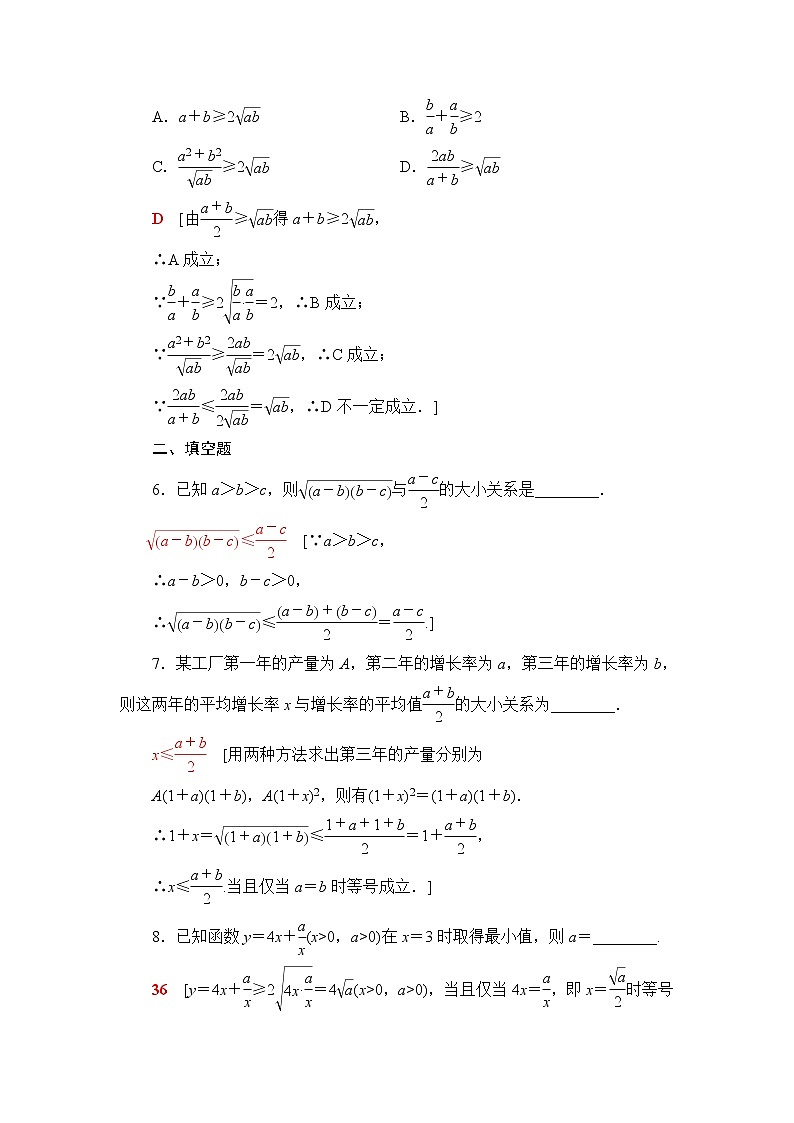 A．a＋b≥2√(ab)　　B．b/a＋a/b≥2
C．(a²＋b²)/√(ab)≥2√(ab)　　D．2ab/(a＋b)≥√(ab)
D　[由(a＋b)/2≥√(ab)得 a＋b≥2√(ab)，
∴A 成立；
∵b/a＋a/b≥2√(b/a·a/b)＝2，∴B 成立；
∵(a²＋b²)/√(ab)≥2ab/√(ab)＝2√(ab)，∴C 成立；
∵2ab/(a＋b)≤2ab/(2√(ab))＝√(ab)，∴D 不一定成立．]
二、填空题
6．已知 a＞b＞c，则√((a－b)(b－c))与(a－c)/2的大小关系是________．
√((a－b)(b－c))≤(a－c)/2　[∵a＞b＞c，
∴a－b＞0，b－c＞0，
∴√((a－b)(b－c))≤((a－b)＋(b－c))/2＝(a－c)/2.]
7．某工厂第一年的产量为 A，第二年的增长率为 a，第三年的增长率为 b，
则这两年的平均增长率 x 与增长率的平均值(a＋b)/2的大小关系为________．
x≤(a＋b)/2　[用两种方法求出第三年的产量分别为
A(1＋a)(1＋b)，A(1＋x)²，则有(1＋x)²＝(1＋a)(1＋b)．
∴1＋x＝√((1＋a)(1＋b))≤(1＋a＋1＋b)/2＝1＋(a＋b)/2，
∴x≤(a＋b)/2.当且仅当 a＝b 时等号成立．]
8．已知函数 y＝4x＋a/x(x>0，a>0)在 x＝3 时取得最小值，则 a＝________.
36　[y＝4x＋a/x≥2√(4x·a/x)＝4√a(x>0，a>0)，当且仅当 4x＝a/x，即 x＝√a/2时等号